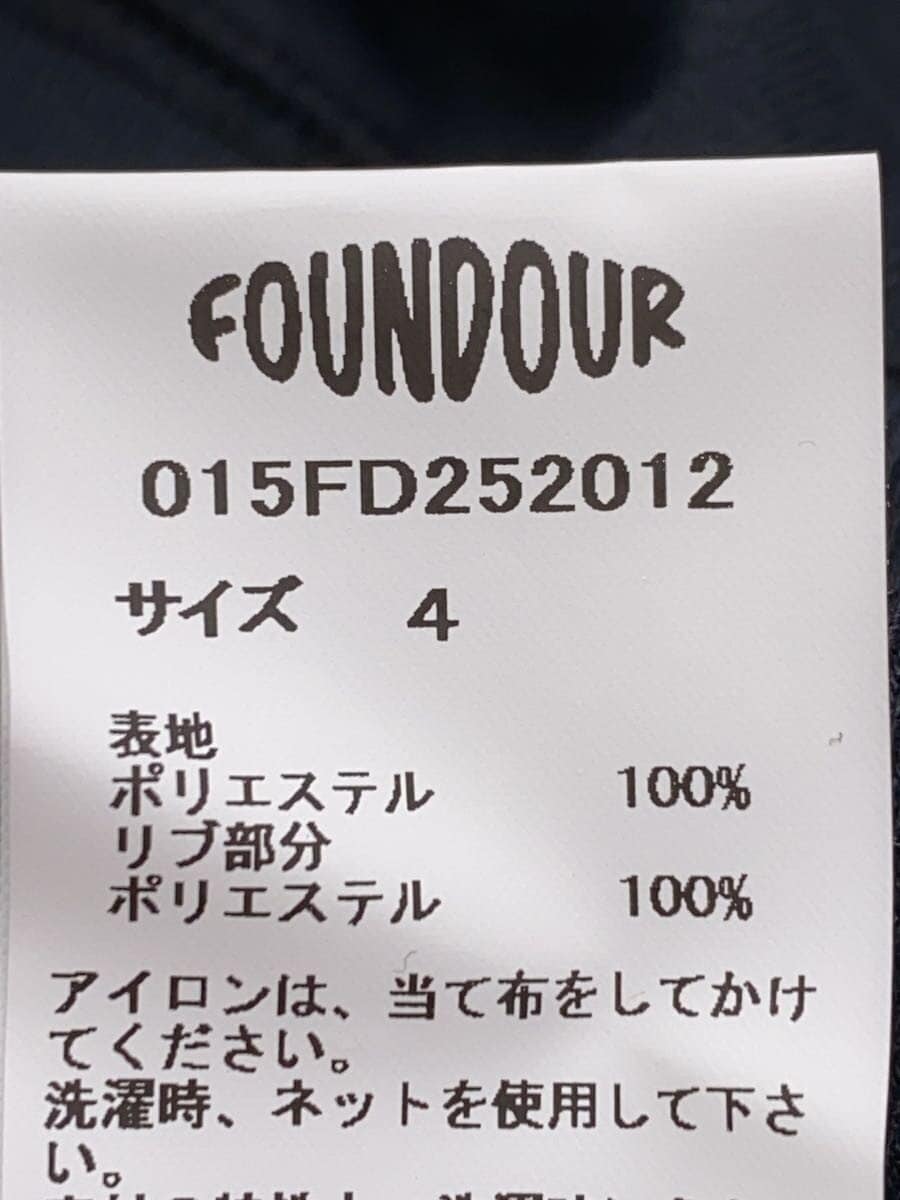 FOUNDOUR
015FD252012
サイズ 4
表地
ポリエステル 100%
リブ部分
ポリエステル 100%
アイロンは、当て布をしてかけ
てください。
洗濯時、ネットを使用して下さ
い。